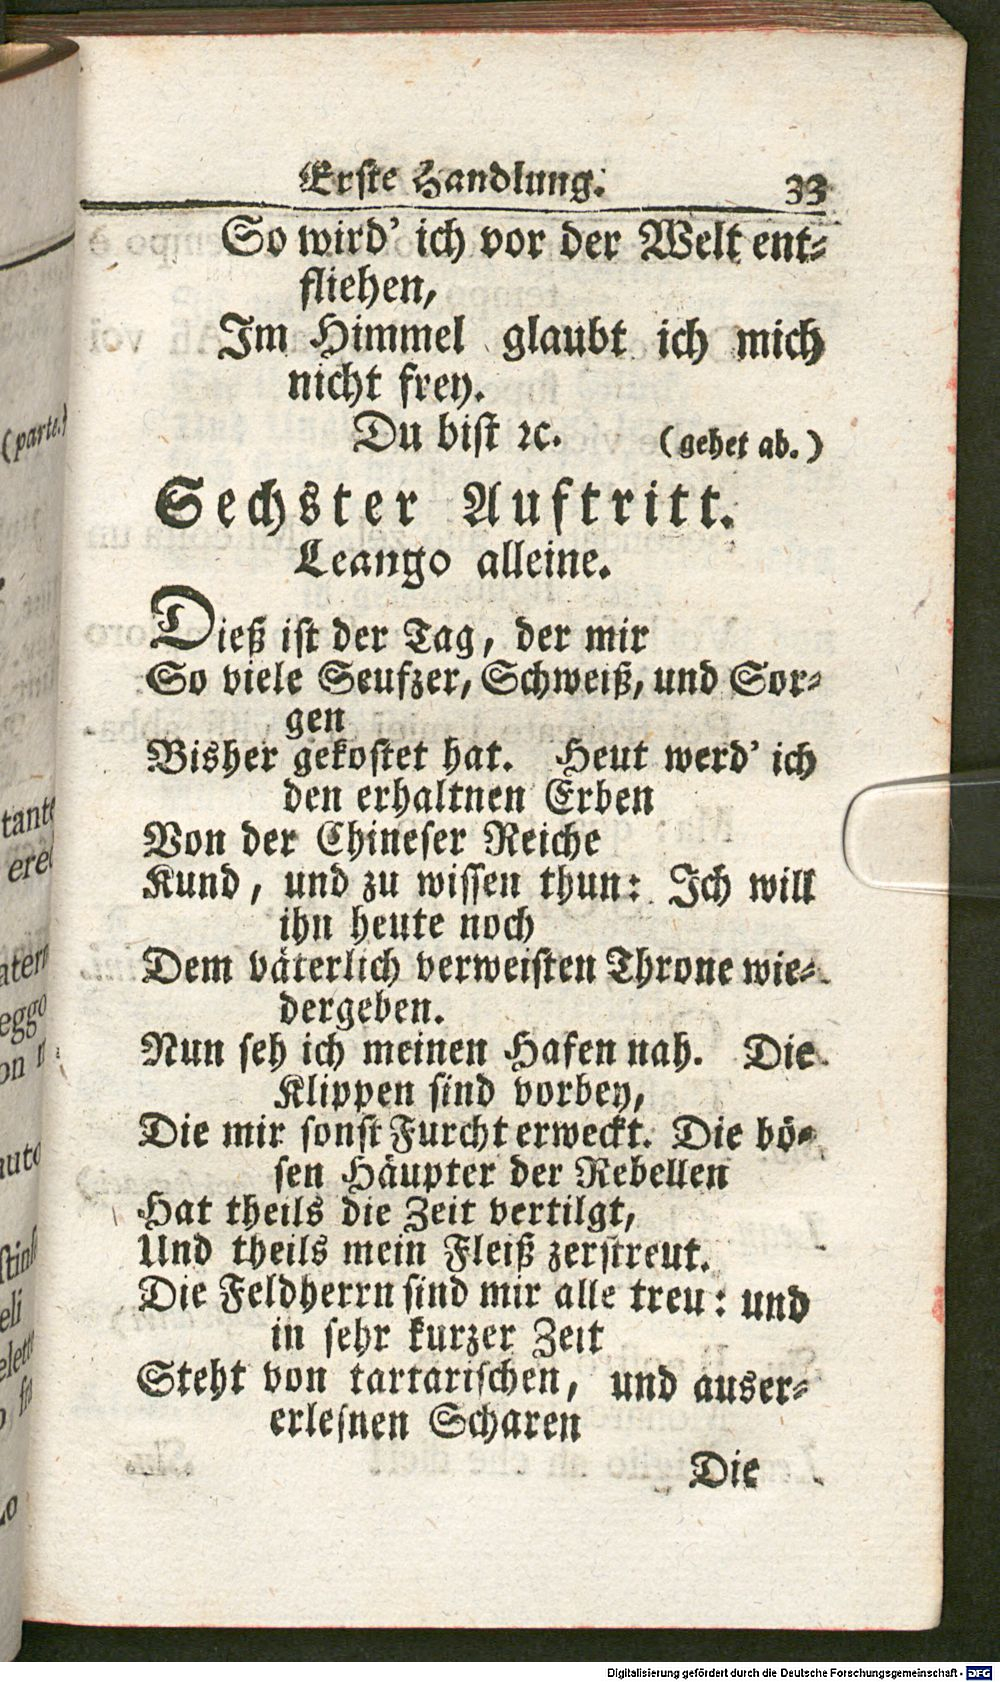 Erste Handlung. 33
So wird' ich vor der Welt ent-
fliehen,
Im Himmel glaubt ich mich
nicht frey.
Du bist ꝛc. (gehet ab.)
Sechster Auftritt.
Leango alleine.
Dieß ist der Tag, der mir
So viele Seufzer, Schweiß, und Sor-
gen
Bisher gekostet hat. Heut werd' ich
den erhaltnen Erben
Von der Chineser Reiche
Kund, und zu wissen thun: Ich will
ihn heute noch
Dem väterlich verweisten Throne wie-
dergeben.
Nun seh ich meinen Hafen nah. Die
Klippen sind vorbey,
Die mir sonst Furcht erweckt. Die bö-
sen Häupter der Rebellen
Hat theils die Zeit vertilgt,
Und theils mein Fleiß zerstreut.
Die Feldherrn sind mir alle treu: und
in sehr kurzer Zeit
Steht von tartarischen, und auser-
erlesnen Scharen
Die
(parte.)
tante
Digitalisierung gefördert durch die Deutsche Forschungsgemeinschaft - DFG